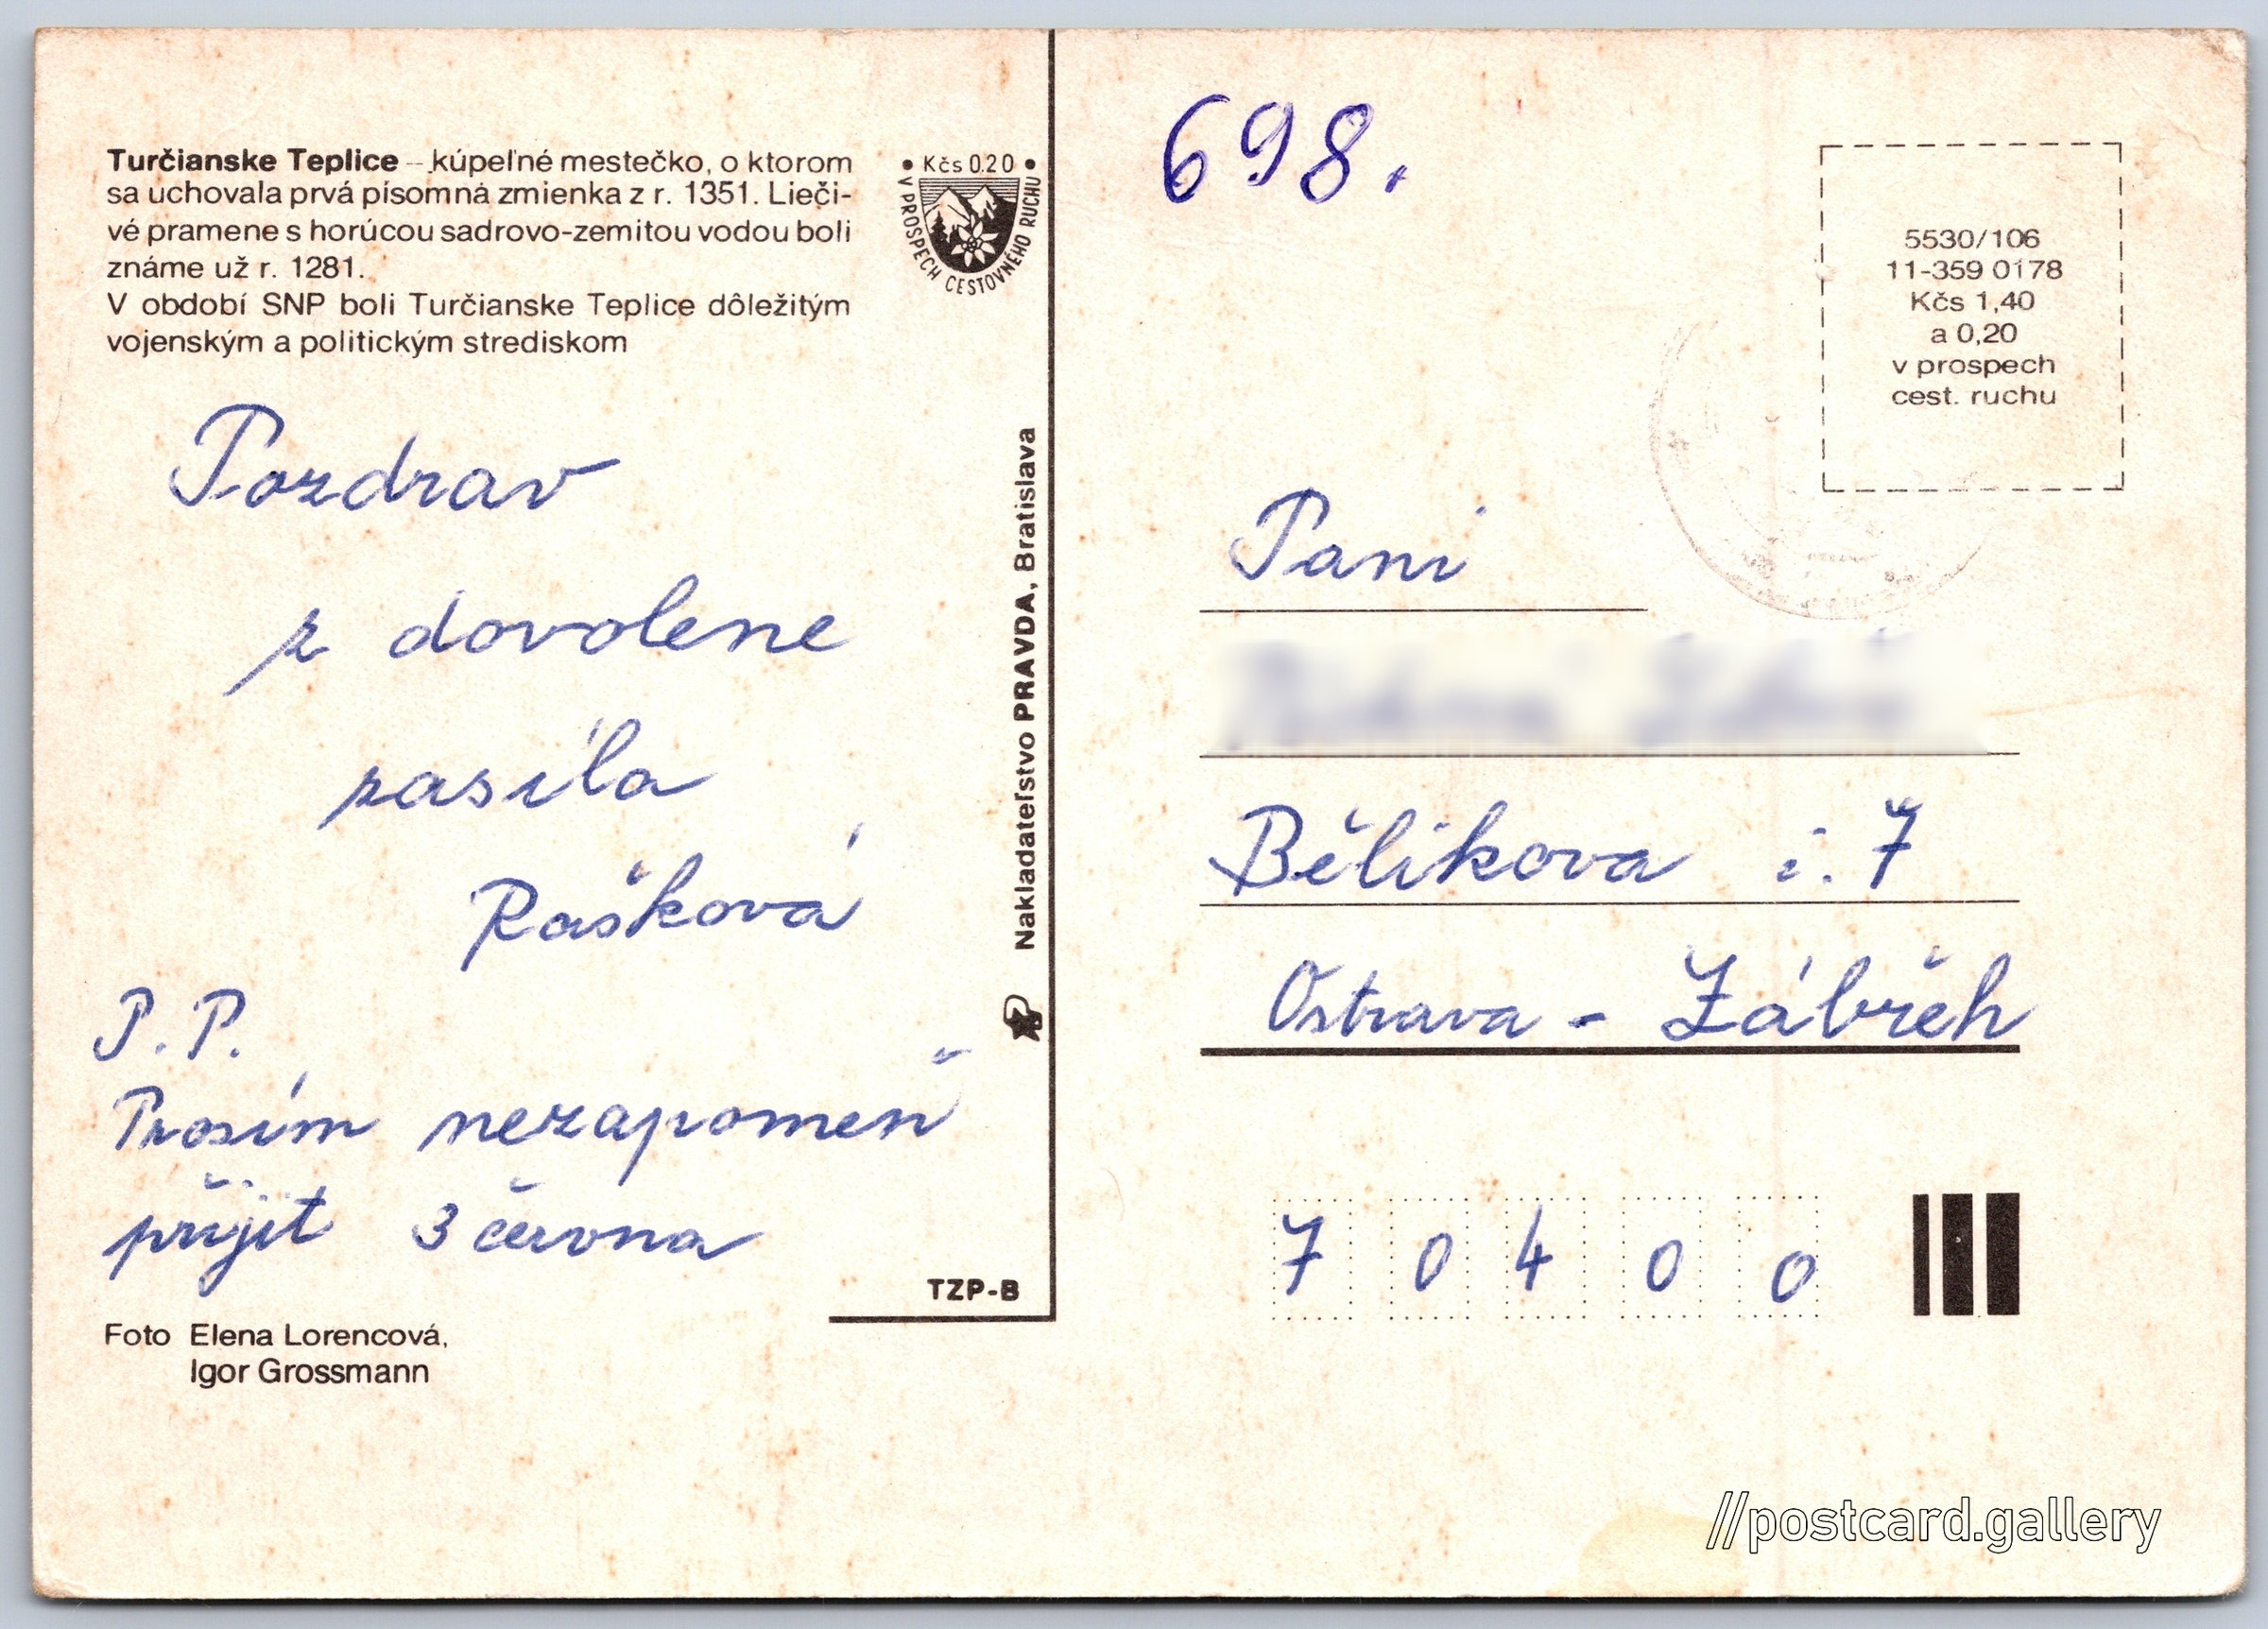 Turčianske Teplice – kúpeľné mestečko, o ktorom
sa uchovala prvá písomná zmienka z r. 1351. Lieči-
vé pramene s horúcou sadrovo-zemitou vodou boli
známe už r. 1281.
V období SNP boli Turčianske Teplice dôležitým
vojenským a politickým strediskom
• Kčs 0.20 •
V PROSPECH CESTOVNÉHO RUCHU
Pozdrav
z dovolene
zasíla
Rašková
P.P.
Prosím nezapomeň
přijit 3 června
Foto Elena Lorencová,
Igor Grossmann
TZP-B
Nakladateľstvo PRAVDA, Bratislava
698.
5530/106
11-359 0178
Kčs 1,40
a 0,20
v prospech
cest. ruchu
Pani
Bělikova č. 7
Ostrava - Zábřeh
7 0 4 0 0
//postcard.gallery